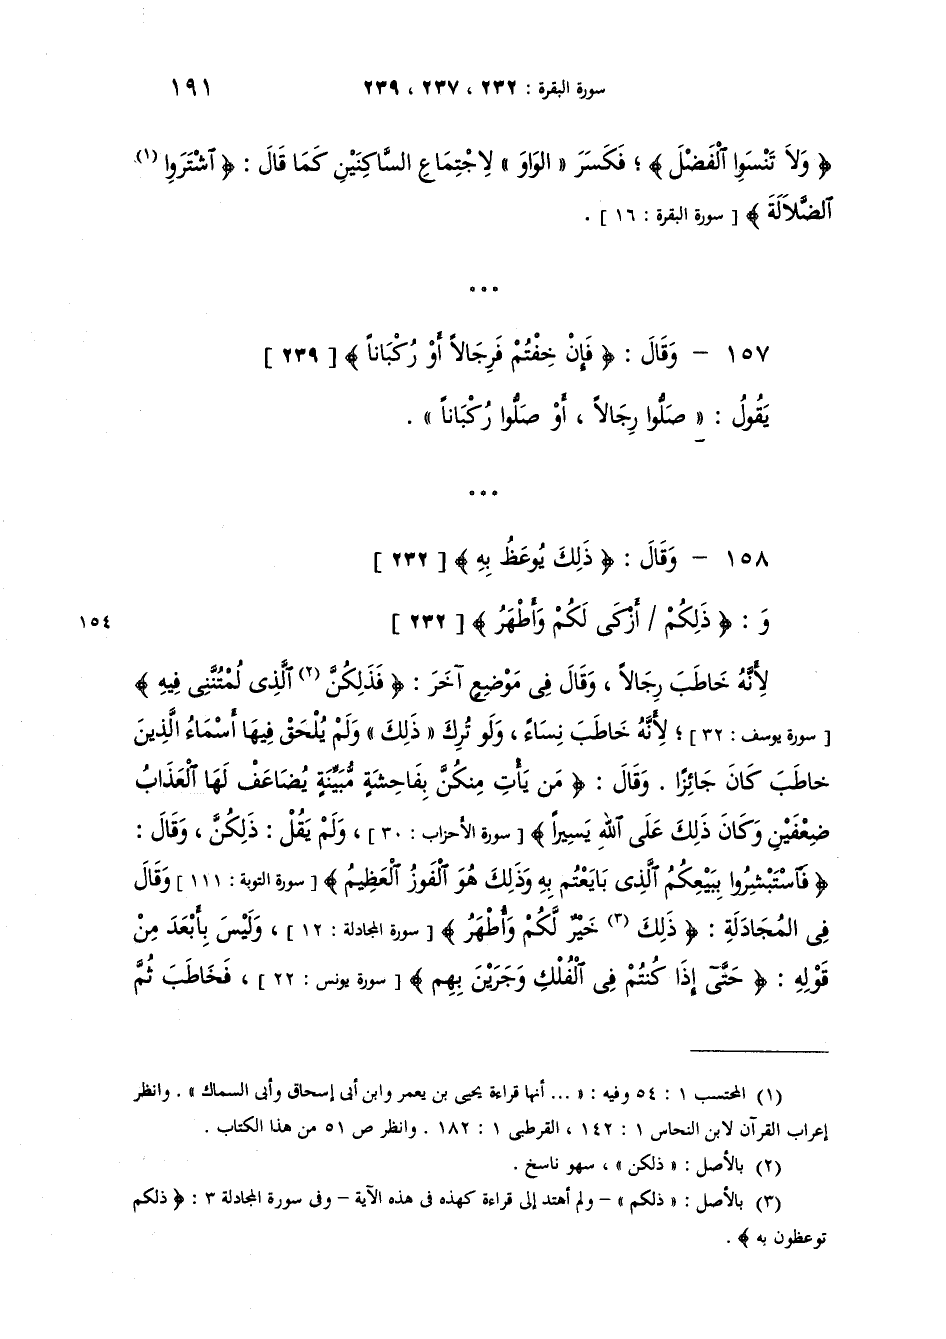 سورة البقرة : ٢٣٢ ، ٢٣٧ ، ٢٣٩ ١٩١
﴿ وَلاَ تَنْسَوِا ٱلْفَضْلَ ﴾ ؛ فَكَسَرَ « الوَاوَ » لِاجْتِمَاعِ السَّاكِنَيْنِ كَمَا قَالَ : ﴿ آشْتَرَوِا (١)
ٱلضَّلاَلَةَ ﴾ [ سورة البقرة : ١٦ ] .
•••
١٥٧ – وَقَالَ : ﴿ فَإِنْ خِفْتُمْ فَرِجَالاً أَوْ رُكْبَاناً ﴾ [ ٢٣٩ ]
يَقُولُ : « صَلُّوا رِجَالاً ، أَوْ صَلُّوا رُكْبَاناً » .
•••
١٥٨ – وَقَالَ : ﴿ ذَلِكَ يُوعَظُ بِهِ ﴾ [ ٢٣٢ ]
وَ : ﴿ ذَلِكُمْ / أَزْكَى لَكُمْ وَأَطْهَرُ ﴾ [ ٢٣٢ ] ١٥٤
لِأَنَّهُ خَاطَبَ رِجَالاً ، وَقَالَ فِى مَوْضِعٍ آخَرَ : ﴿ فَذَلِكُنَّ (٢) ٱلَّذِى لُمْتُنَّنِى فِيهِ ﴾
[ سورة يوسف : ٣٢ ] ؛ لِأَنَّهُ خَاطَبَ نِسَاءً ، وَلَو تُرِكَ « ذَلِكَ » وَلَمْ يُلْحَقْ فِيهَا أَسْمَاءُ الَّذِينَ
خاطَبَ كَانَ جَائِزًا . وَقَالَ : ﴿ مَن يَأْتِ مِنكُنَّ بِفَاحِشَةٍ مُّبَيِّنَةٍ يُضَاعَفْ لَهَا ٱلْعَذَابُ
ضِعْفَيْنِ وَكَانَ ذَلِكَ عَلَى ٱللهِ يَسِيراً ﴾ [ سورة الأحزاب : ٣٠ ] ، وَلَمْ يَقُلْ : ذَلِكُنَّ ، وَقَالَ :
﴿ فَٱسْتَبْشِرُوا بِبَيْعِكُمُ ٱلَّذِى بَايَعْتُم بِهِ وَذَلِكَ هُوَ ٱلْفَوزُ ٱلْعَظِيمُ ﴾ [ سورة التوبة : ١١١ ] وَقَالَ
فِى المُجَادَلَةِ : ﴿ ذَلِكَ (٣) خَيْرٌ لَّكُمْ وَأَطْهَرُ ﴾ [ سورة المجادلة : ١٢ ] ، وَلَيْسَ بِأَبْعَدَ مِنْ
قَوْلِهِ : ﴿ حَتَّىٓ إِذَا كُنتُمْ فِى ٱلْفُلْكِ وَجَرَيْنَ بِهِم ﴾ [ سورة يونس : ٢٢ ] ، فَخَاطَبَ ثُمَّ
(١) المحتسب ١ : ٥٤ وفيه : « ... أنها قراءة يحيى بن يعمر وابن أبى إسحاق وأبى السماك » . وانظر
إعراب القرآن لابن النحاس ١ : ١٤٢ ، القرطبى ١ : ١٨٢ . وانظر ص ٥١ من هذا الكتاب .
(٢) بالأصل : « ذلكن » ، سهو ناسخ .
(٣) بالأصل : « ذلكم » – ولم أهتد إلى قراءة كهذه فى هذه الآية – وفى سورة المجادلة ٣ : ﴿ ذلكم
توعظون به ﴾ .